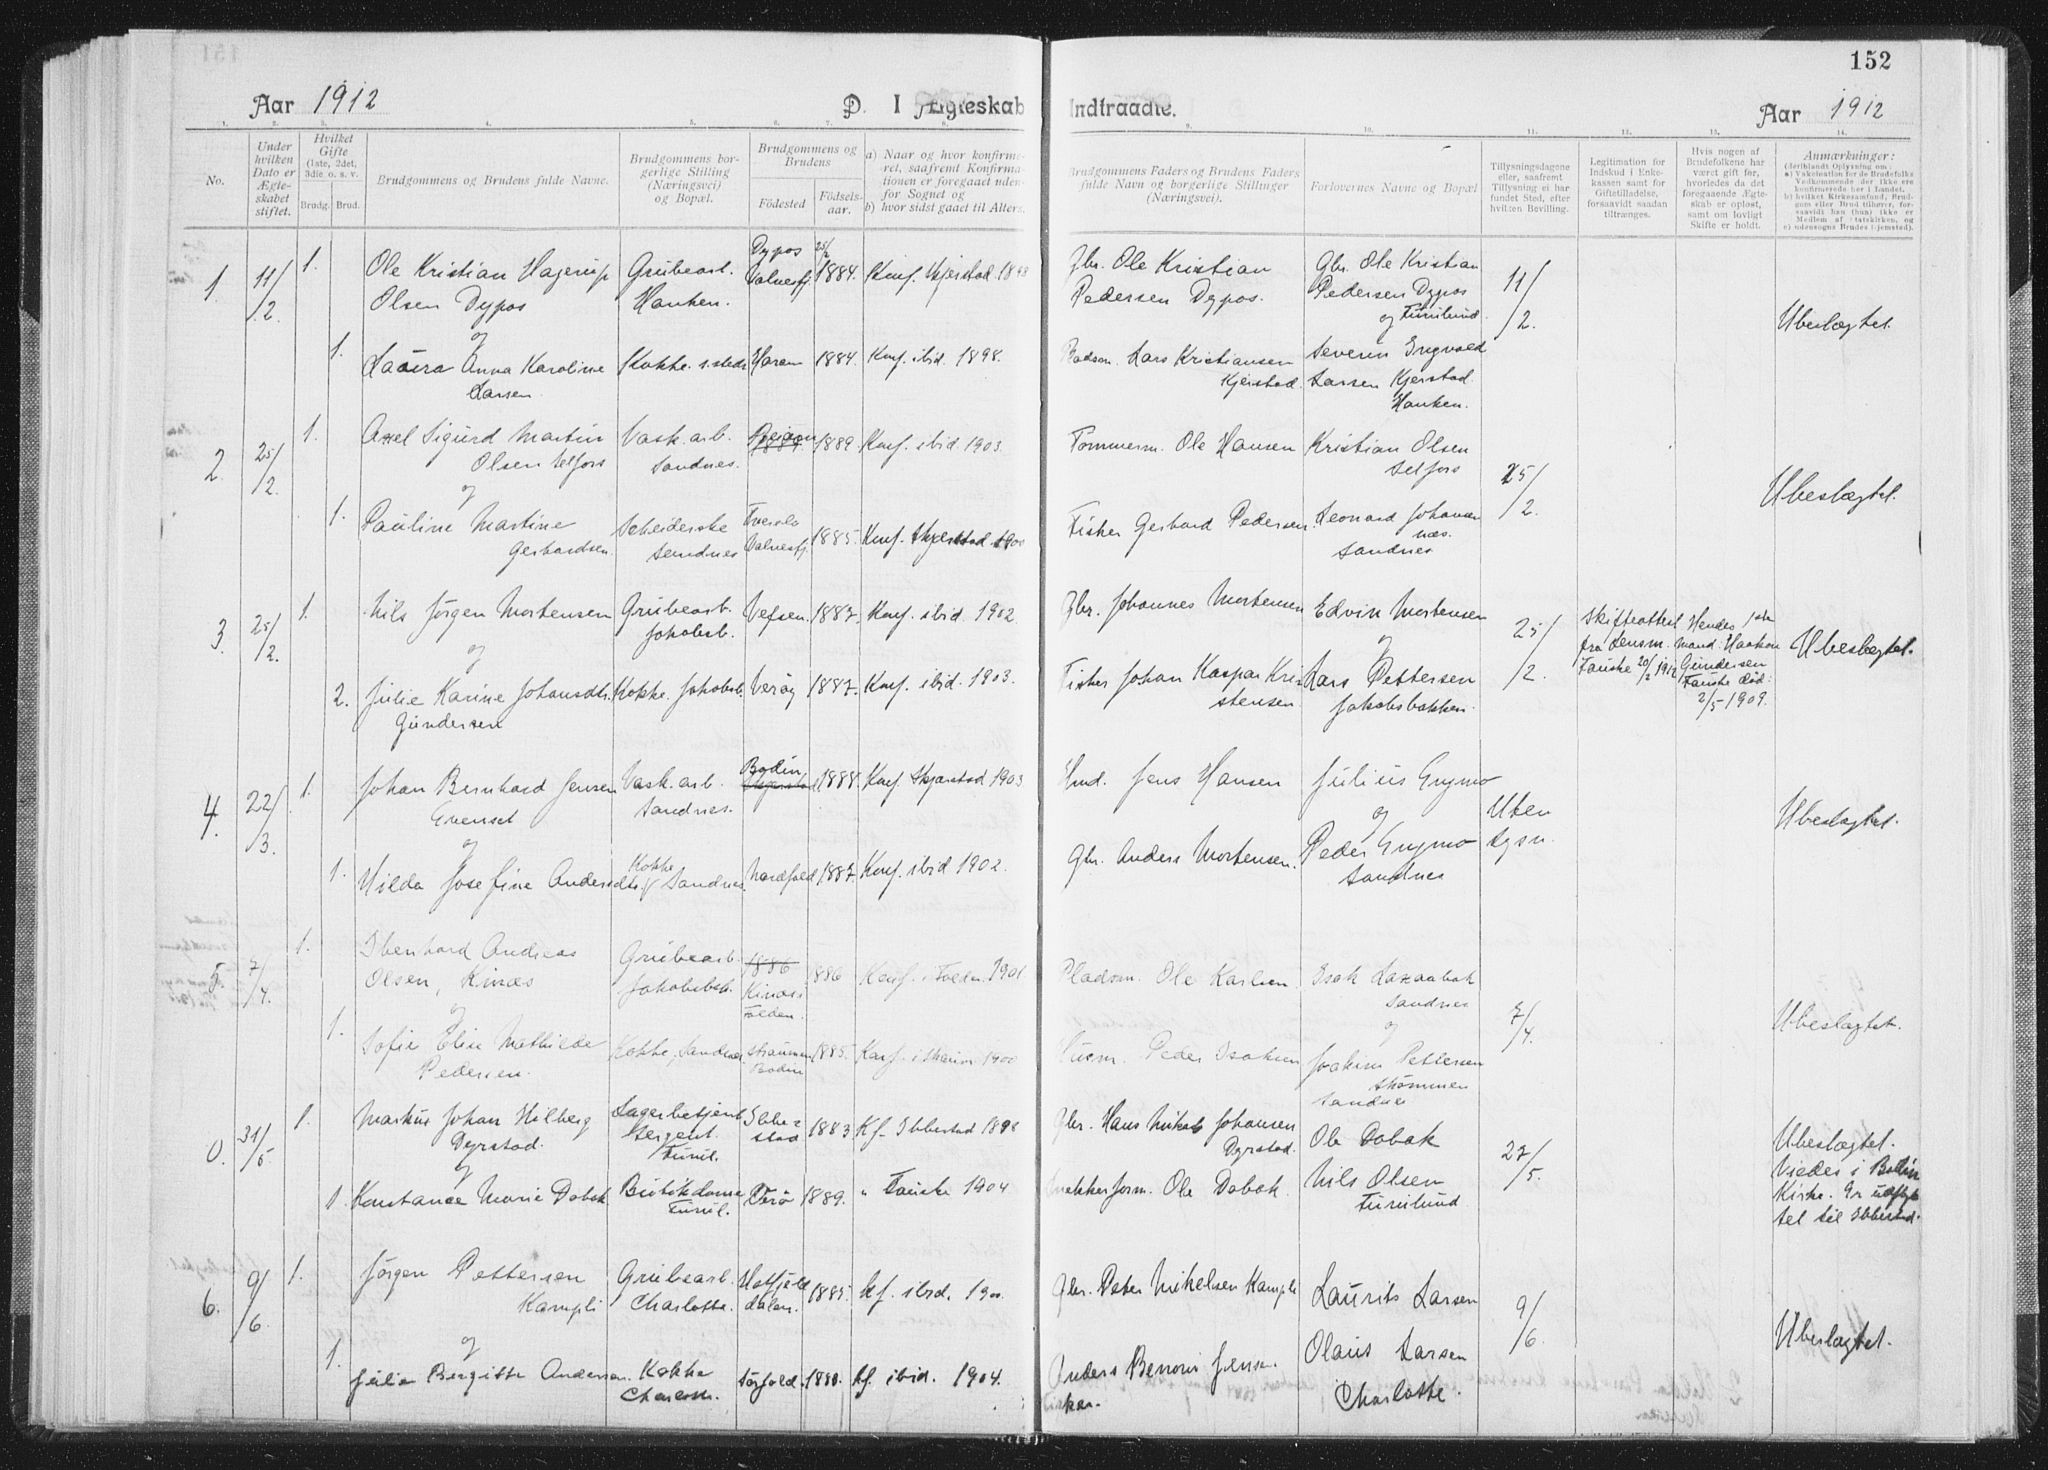 152
Aar 1912
D. I Ægteskab
Indtraadte.
Aar 1912
1. 2. 3. 4. 5. 6. 7. 8. 9. 10. 11. 12. 13. 14.
No.
Under hvilken Dato er Ægteskabet stiftet.
Hvilket Gifte (1ste, 2det, 3die o. s. v.
Brudg. Brud.
Brudgommens og Brudens fulde Navne.
Brudgommens borgerlige Stilling (Næringsvei) og Bopæl.
Brudgommens og Brudens
Fødested
Fødselsaar.
a) Naar og hvor konfirmeret, saafremt Konfirmationen er foregaaet udenfor Sognet og
b) hvor sidst gaaet til Alters.
Brudgommens Faders og Brudens Faders fulde Navn og borgerlige Stillinger (Næringsvei).
Forlovernes Navne og Bopæl
Tillysningsdagene eller, saafremt Tillysning ei har fundet Sted, efter hvilken Bevilling.
Legitimation for Indskud i Enkekassen samt for Giftetilladelse, forsaavidt saadan tiltrænges.
Hvis nogen af Brudefolkene har været gift før, hvorledes da det foregaaende Ægteskab er opløst, samt om lovligt Skifte er holdt.
Anmærkninger:
1 11/2. 1. Ole Kristian Hagerup Olsen Dypos
Grubearb. Hanken.
Dypos Valnesfj. 25/2 1884. Konf. Skjerstad. 1898
Gbr. Ole Kristian Pedersen Dypos.
Gbr. Ole Kristian Pedersen Dypos og Furulund
11/2.
Ubeslægtet.
og
1. Laura Anna Karoline Larsen
Kokke. s. steds Haram 1884. Konf. ibid. 1898.
Lars Kristiansen Kjerstad.
Severin Ingvald Larsen Kjerstad. Hanken.
2 25/2. 1. Axel Sigurd Martin Olsen Selfors
Vask. arb. Sandnes.
1889 Konf. ibid 1903.
Tømmerm. Ole Hansen
Kristian Olsen Selfors
25/2.
Ubeslægtet.
og
1. Pauline Martine Gerhardsen
Skeiderske Sandnes
Valnesfj. 1885. Konf. Skjerstad. 1900
Fisker Gerhard Pedersen
Leonard Johannesnæs. Sandnes
3. 25/2. 1. Nils Jörgen Mortensen
Grubearb. Jakobsb.
Vefsen. 1887. Konf. ibid. 1902.
Gbr. Johannes Mortensen
Edvin Mortensen
25/2.
Skifteattest fra Lensm. Fauske 20/2 1912
Hendes 1ste mand: Haakon Gundersen Fauske død: 2/5-1909.
Ubeslægtet.
og
2. Julie Karine Johansdtr. Gundersen
Kokke. Jakobsb. Verøy 1887. Konf. ibid. 1903.
Fisker Johan Kaspar Kristensen
og Lars Pettersen Jakobsbakken.
4. 22/3. 1. Johan Bernhard Jensen Evenset
Vask. arb. Sandnes.
Bodin 1888. Konf Skjerstad 1903
Hmd. Jens Hansen
Julius Engmo
Uten lysn.
Ubeslægtet.
og
1. Hilda Josefine Andersdtr.
Kokke Sandnes. Nordfold 1887. Konf. ibid 1902.
Gbr. Anders Mortensen.
og Peder Engmo Sandnes
5 7/4. 1. Ibenhard Andreas Olsen, Kinæs
Grubearb. Jakobsb.
1886 Kinæs i Folden. 1886 Konf. i Folden. 1901
Pladsm. Ole Karlsen
Isak Sandnes
7/4.
Ubeslægtet.
og
1. Sofie Elise Mathilde Pedersen.
Kokke, Sandnes Straumen Bodin 1885. Konf. i Skaun 1900
Husm. Peder Isaksen
og Joakim Pettersen Strömmen Sandnes
0. 31/5. 1. Markus Johan Hilberg Dyrstad.
Lagerbetjent Sergent. Furul.
Ibbestad 1883 Kf. Ibbestad 1898
Gbr. Hans Mikal Johansen Dyrstad.
Ole Dobak
27/5.
Ubeslægtet. Viedes i Bodin Kirke. Er udflyttet til Ibbestad.
og
1. Konstance Marie Dobak
Butikdame Furul. 1889. " Fauske 1904
Ole Dobak.
Nils Olsen Furulund
6. 9/6. 1. Jörgen Pettersen Kampli
Grubearb. Charlotta.
Hatfjelddalen. 1885. Kf. ibid. 1900
Gbr. Peter Mikelsen Kampli
Laurits Larsen
9/6.
Ubeslægtet.
og
1. Julie Bergitte Andersen.
Kokke Charlott. Sörfold. 1880. Kf. ibid. 1904.
Anders Benoni Jensen Fisker.
Olaus Larsen Charlotte.